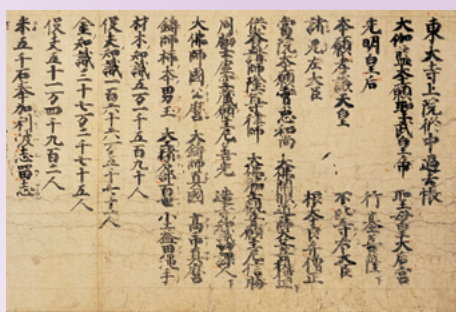 東大寺上院修中過去帳
大伽藍本願聖武皇帝 聖母皇大后宮
光明皇后 行基菩薩
本願孝謙天皇 不比等右大臣
諸兄左大臣 根本良弁僧正
當院本願實忠和尚 大佛開眼導師天竺菩提僧正
供養講師隆尊律師 大佛脇士願主尼信勝
同脇士虚空蔵願主尼善光 造寺知識功課人
大佛師國公麿 大鋳師真國 高市真麿
鋳師柿本男玉 百世 小工益田縄手
材木知識五万一千五百九十人
役夫知識一百六十六万五千七十一人
金知識三十七万二千七十五人
役夫五十一万四千九百二人
米五千石奉加利波志留志